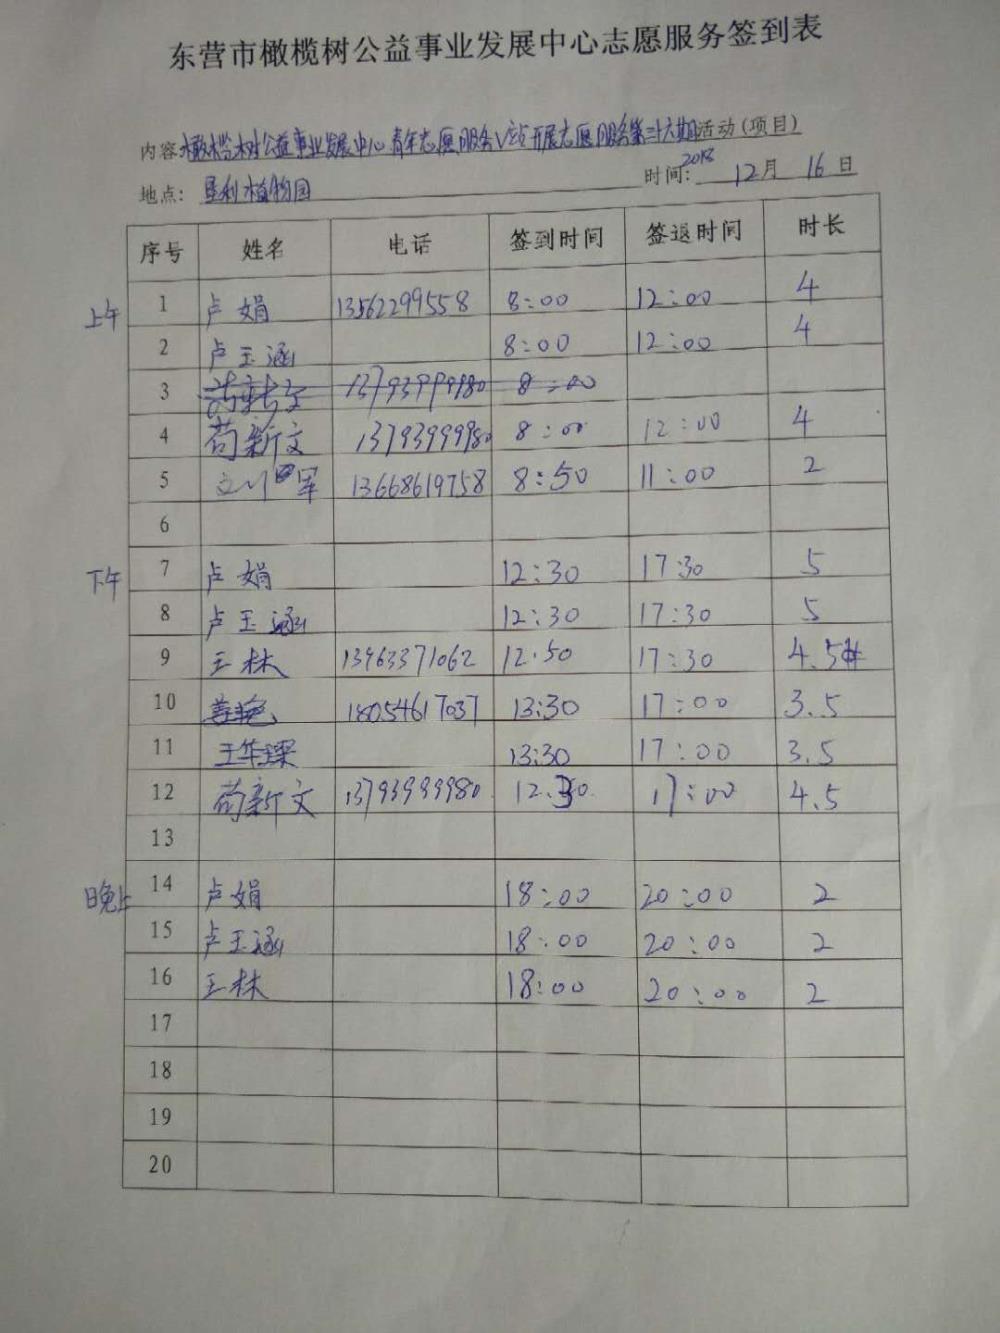 东营市橄榄树公益事业发展中心志愿服务签到表
内容:橄榄树公益事业发展中心青年志愿服务V站开展志愿服务第三十六期活动(项目)
地点: 垦利植物园 时间: 2018 12月 16日
序号 姓名 电话 签到时间 签退时间 时长
上午 1 卢娟 13562299558 8:00 12:00 4
2 卢玉涵 8:00 12:00 4
3 13793999980 8:00
4 苟新文 13793999980 8:00 12:00 4
5 军 13668619758 8:50 11:00 2
6
下午 7 卢娟 12:30 17:30 5
8 卢玉涵 12:30 17:30 5
9 王林 13963371062 12:50 17:30 4.5
10 姜艳 18054617037 13:30 17:00 3.5
11 王华琛 13:30 17:00 3.5
12 苟新文 13793999980 12:30 17:00 4.5
13
晚上 14 卢娟 18:00 20:00 2
15 卢玉涵 18:00 20:00 2
16 王林 18:00 20:00 2
17
18
19
20